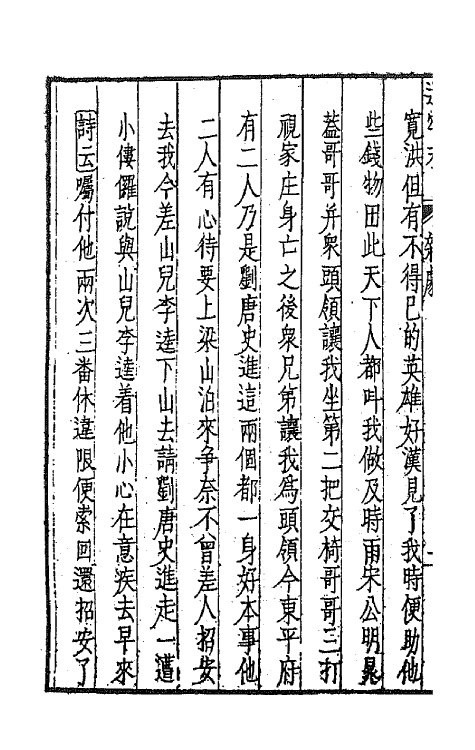 寛洪但有不得已的英雄好漢見了我時便助他
些錢物因此天下人都呌我做及時雨宋公明晁
葢哥哥并衆頭領讓我坐第二把交椅哥哥三打
視家庄身亡之後衆兄弟讓我爲頭領今東平府
有二人乃是劉唐史進這兩個都一身好本事他
二人有心待要上梁山泊來争奈不曾差人招安
去我今差山兒李逵下山去請劉唐史進走一遭
小僂儸說與山兒李逵着他小心在意疾去早來
詩云囑付他兩次三番休違限便索回還招安了